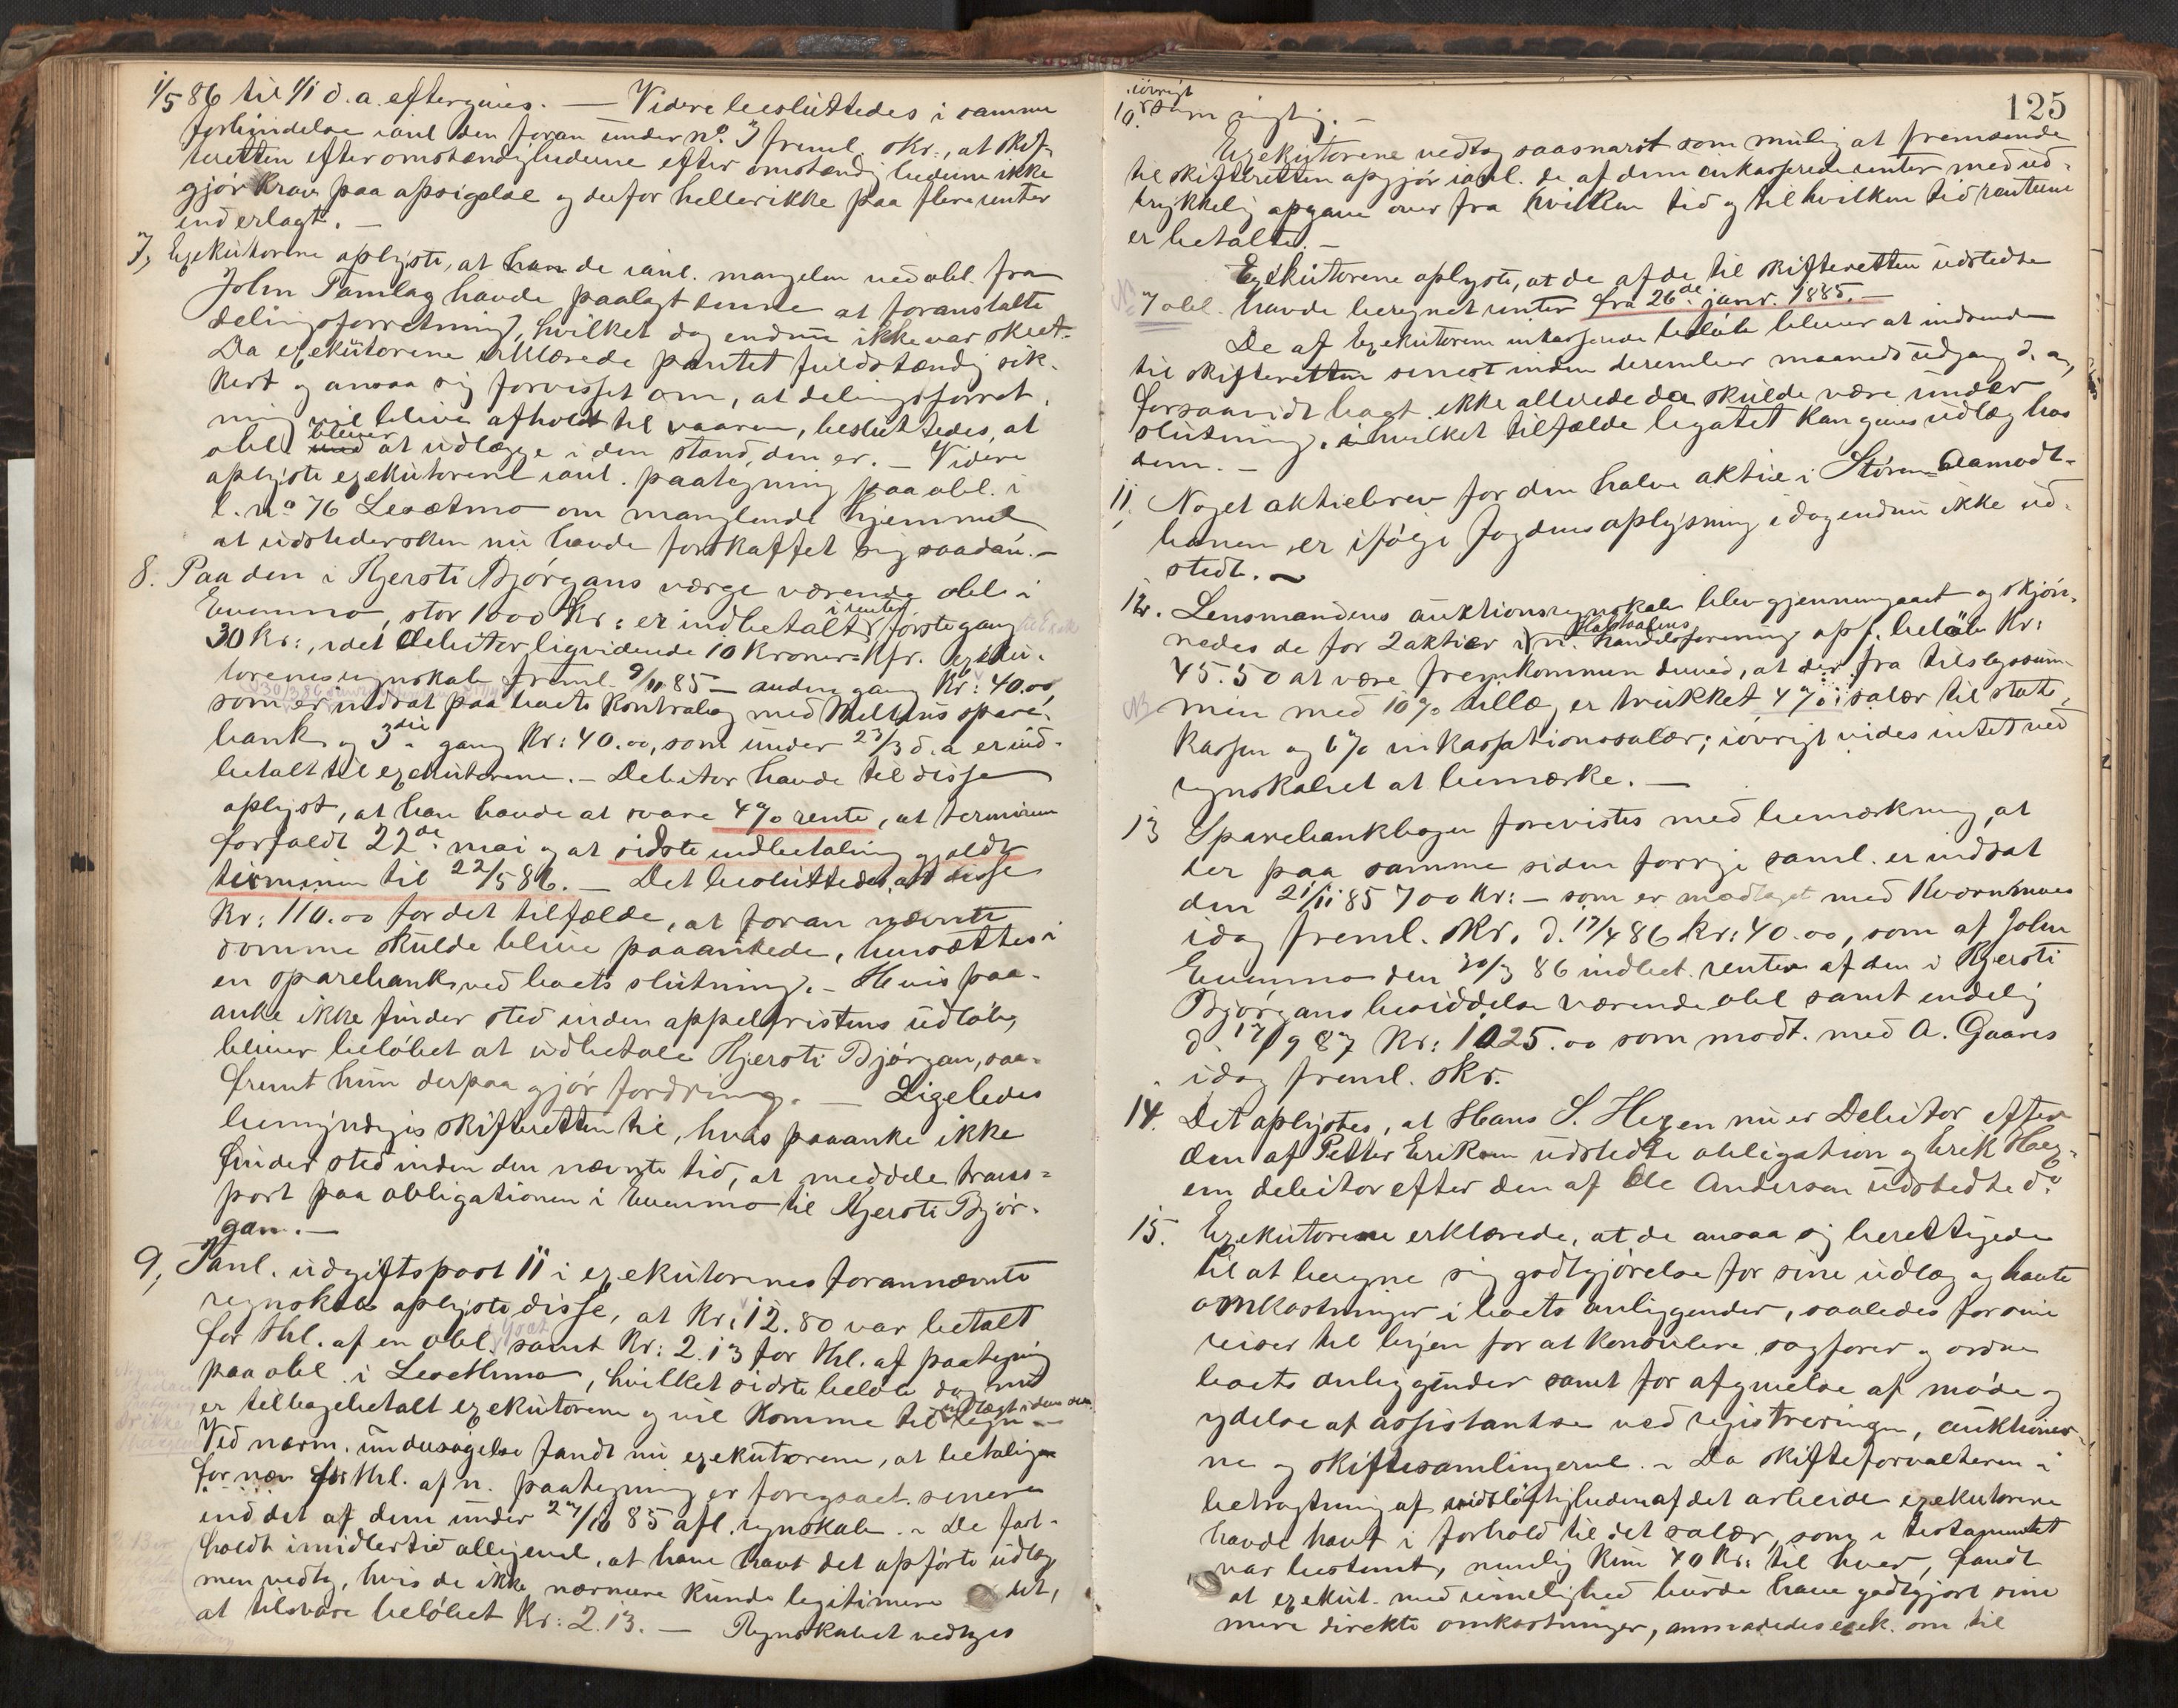 1/5 86 til 1/1 d. a. eftergives. — Videre besluttedes i samme
forbindelse ianl. den foran under no. 3 freml. skr., at skif-
teretten efter omstændighederne efter omstændighederne ikke
gjør krav paa opsigelse og derfor heller ikke paa flere renter
end erlagt. —
7, Exekutorerne oplyste, at de ianl. mangelen ved obl. fra
John Tamlag havde paalagt denne at foranstalte
delingsforretning, hvilket dog endnu ikke var skeet.
Da exekutorerne erklærede pantet fuldstændig sik-
kert og ansaa sig forvisset om, at delingsforret-
ning vil blive afholdt til vaaren, besluttedes, at
obl. bliver at udlægge i den stand, den er. — Videre
oplyste exekutorerne ianl. paategning paa obl. i
l. no 76 Lesætmo om manglende hjemmel
at udstedersken nu havde forskaffet sig saadan. —
8. Paa den i Kjersti Bjørgans værge værende obl. i
Evenmo, stor 1000 Kr: er indbetalt i renter første gang
30 Kr:, idet debitor liqviderede 10 Kroner kfr. exeku-
torernes regnskab freml. 9/11 85 — anden gang Kr: 40.00,
som er indsat paa boets Kontrabog med Meldus spare-
bank og 3die gang Kr: 40.00, som under 23/3 d. a. er ind-
betalt til exekutorerne. — Debitor havde til disse
oplyst, at han havde at svare 4 % rente, at terminen
forfaldt 22de mai og at sidste indbetaling gjaldt
terminen til 22/5 86. — Det besluttedes, at disse
Kr: 110.00 for det tilfælde, at foran nævnte
domme skulde blive paaankede, hensættes i
en sparebank ved boets slutning. — Hvis paa-
anke ikke finder sted inden appelfristens udløb,
bliver beløbet at udbetale Kjersti Bjørgan, saa-
fremt hun derpaa gjør fordring. — Ligeledes
bemyndiges skifteretten til, hvis paaanke ikke
finder sted inden den nævnte tid, at meddele trans-
port paa obligationen i Evenmo til Kjersti Bjør-
gan. —
9, Ianl. udgiftspost 11 i exekutorernes forannævnte
regnskab oplyste disse, at Kr: 12.80 var betalt
for thl. af en obl. samt Kr: 2.13 for thl. af paategning
paa obl. i Lesethmo, hvilket sidste beløb dog nu
er tilbagebetalt exekutorerne og vil komme til
Ved nærm. undersøgelse fandt nu exekutorerne, at betalingen
for thl. af n. paategning er foregaaet senere
end det af dem under 27/10 85 afl. regnskab. — De fast-
holdt imidlertid alligevel, at have havt det opførte udlæg
men vedtog, hvis de ikke nærmere kunde legitimere det,
at tilsvare beløbet Kr: 2.13. — Regnskabet vedtages
125
iøvrigt
som rigtig. —
10. Exekutorerne vedtog saasnart som mulig at fremsende
til skifteretten opgjør ianl. de af dem inkasserede renter med ud-
trykkelig opgave over fra hvilken tid og til hvilken tid renterne
er betalte. —
Exekutorerne oplyste, at de af de til skifteretten udstedte
7 obl. havde beregnet renter fra 26de janr. 1885. —
De af Exekutorerne inkasserede beløb bliver at indsende
til skifteretten senest inden december maaneds udgang d. a.,
forsaavidt boet ikke allerede da skulde være under
slutning, i hvilket tilfælde legatet kan gives udlæg hos
dem. —
11, Noget aktiebrev for den halve aktie i Støren-Aamodt-
banen er ifølge Fogdens oplysning idag endnu ikke ud-
stedt. —
12. Lensmandens auktionsregnskab blev gjennemgaaet og skjøn-
nedes de for 2 aktier i n. handelsforening opf. beløb Kr:
45.50 at være fremkommen derved, at der fra tilslagssum-
men med 10 % tillæg er trukket 4 % i salær til stats-
kassen og 6 % inkassationssalær; iøvrigt vides intet ved
regnskabet at bemærke. —
13 Sparebankbogen forevistes med bemærkning, at
der paa samme siden forrige saml. er indsat
den 21/11 85 700 Kr: — som er modtaget med Kværnmoes
idag freml. skr. d. 17/4 86 kr: 40.00, som af John
Evenmo den 30/3 86 indbet. renter af den i Kjersti
Bjørgans besiddelse værende obl. samt endelig
d. 17/9 87 Kr: 1025.00 som modt. med A. Gaares
idag freml. skr.
14. Det oplystes, at Hans S. Hegen nu er Debitor efter
den af Petter Eriksen udstedte obligation og Erik Hag-
en debitor efter den af Ole Andersen udstedte do.
15. Exekutorerne erklærede, at de ansaa sig berettigede
til at beregne sig godtgjørelse for sine udlæg og havte
omkostninger i boets anliggender, saaledes for sine
reiser til byen for at konsulere sagfører og ordne
boets anliggender samt for afgivelse af møde og
ydelse af assistantse ved registreringen, auktioner-
ne og skiftesamlingerne. — Da skifteforvalteren i
betragtning af vidtløftigheden af det arbeide exekutorerne
havde havt i forhold til det salær, som i testamentet
var bestemt, nemlig kun 40 Kr: til hver, fandt
at exekut. med rimelighed burde have godtgjort sine
mere direkte omkostninger, anmodedes exek. om til